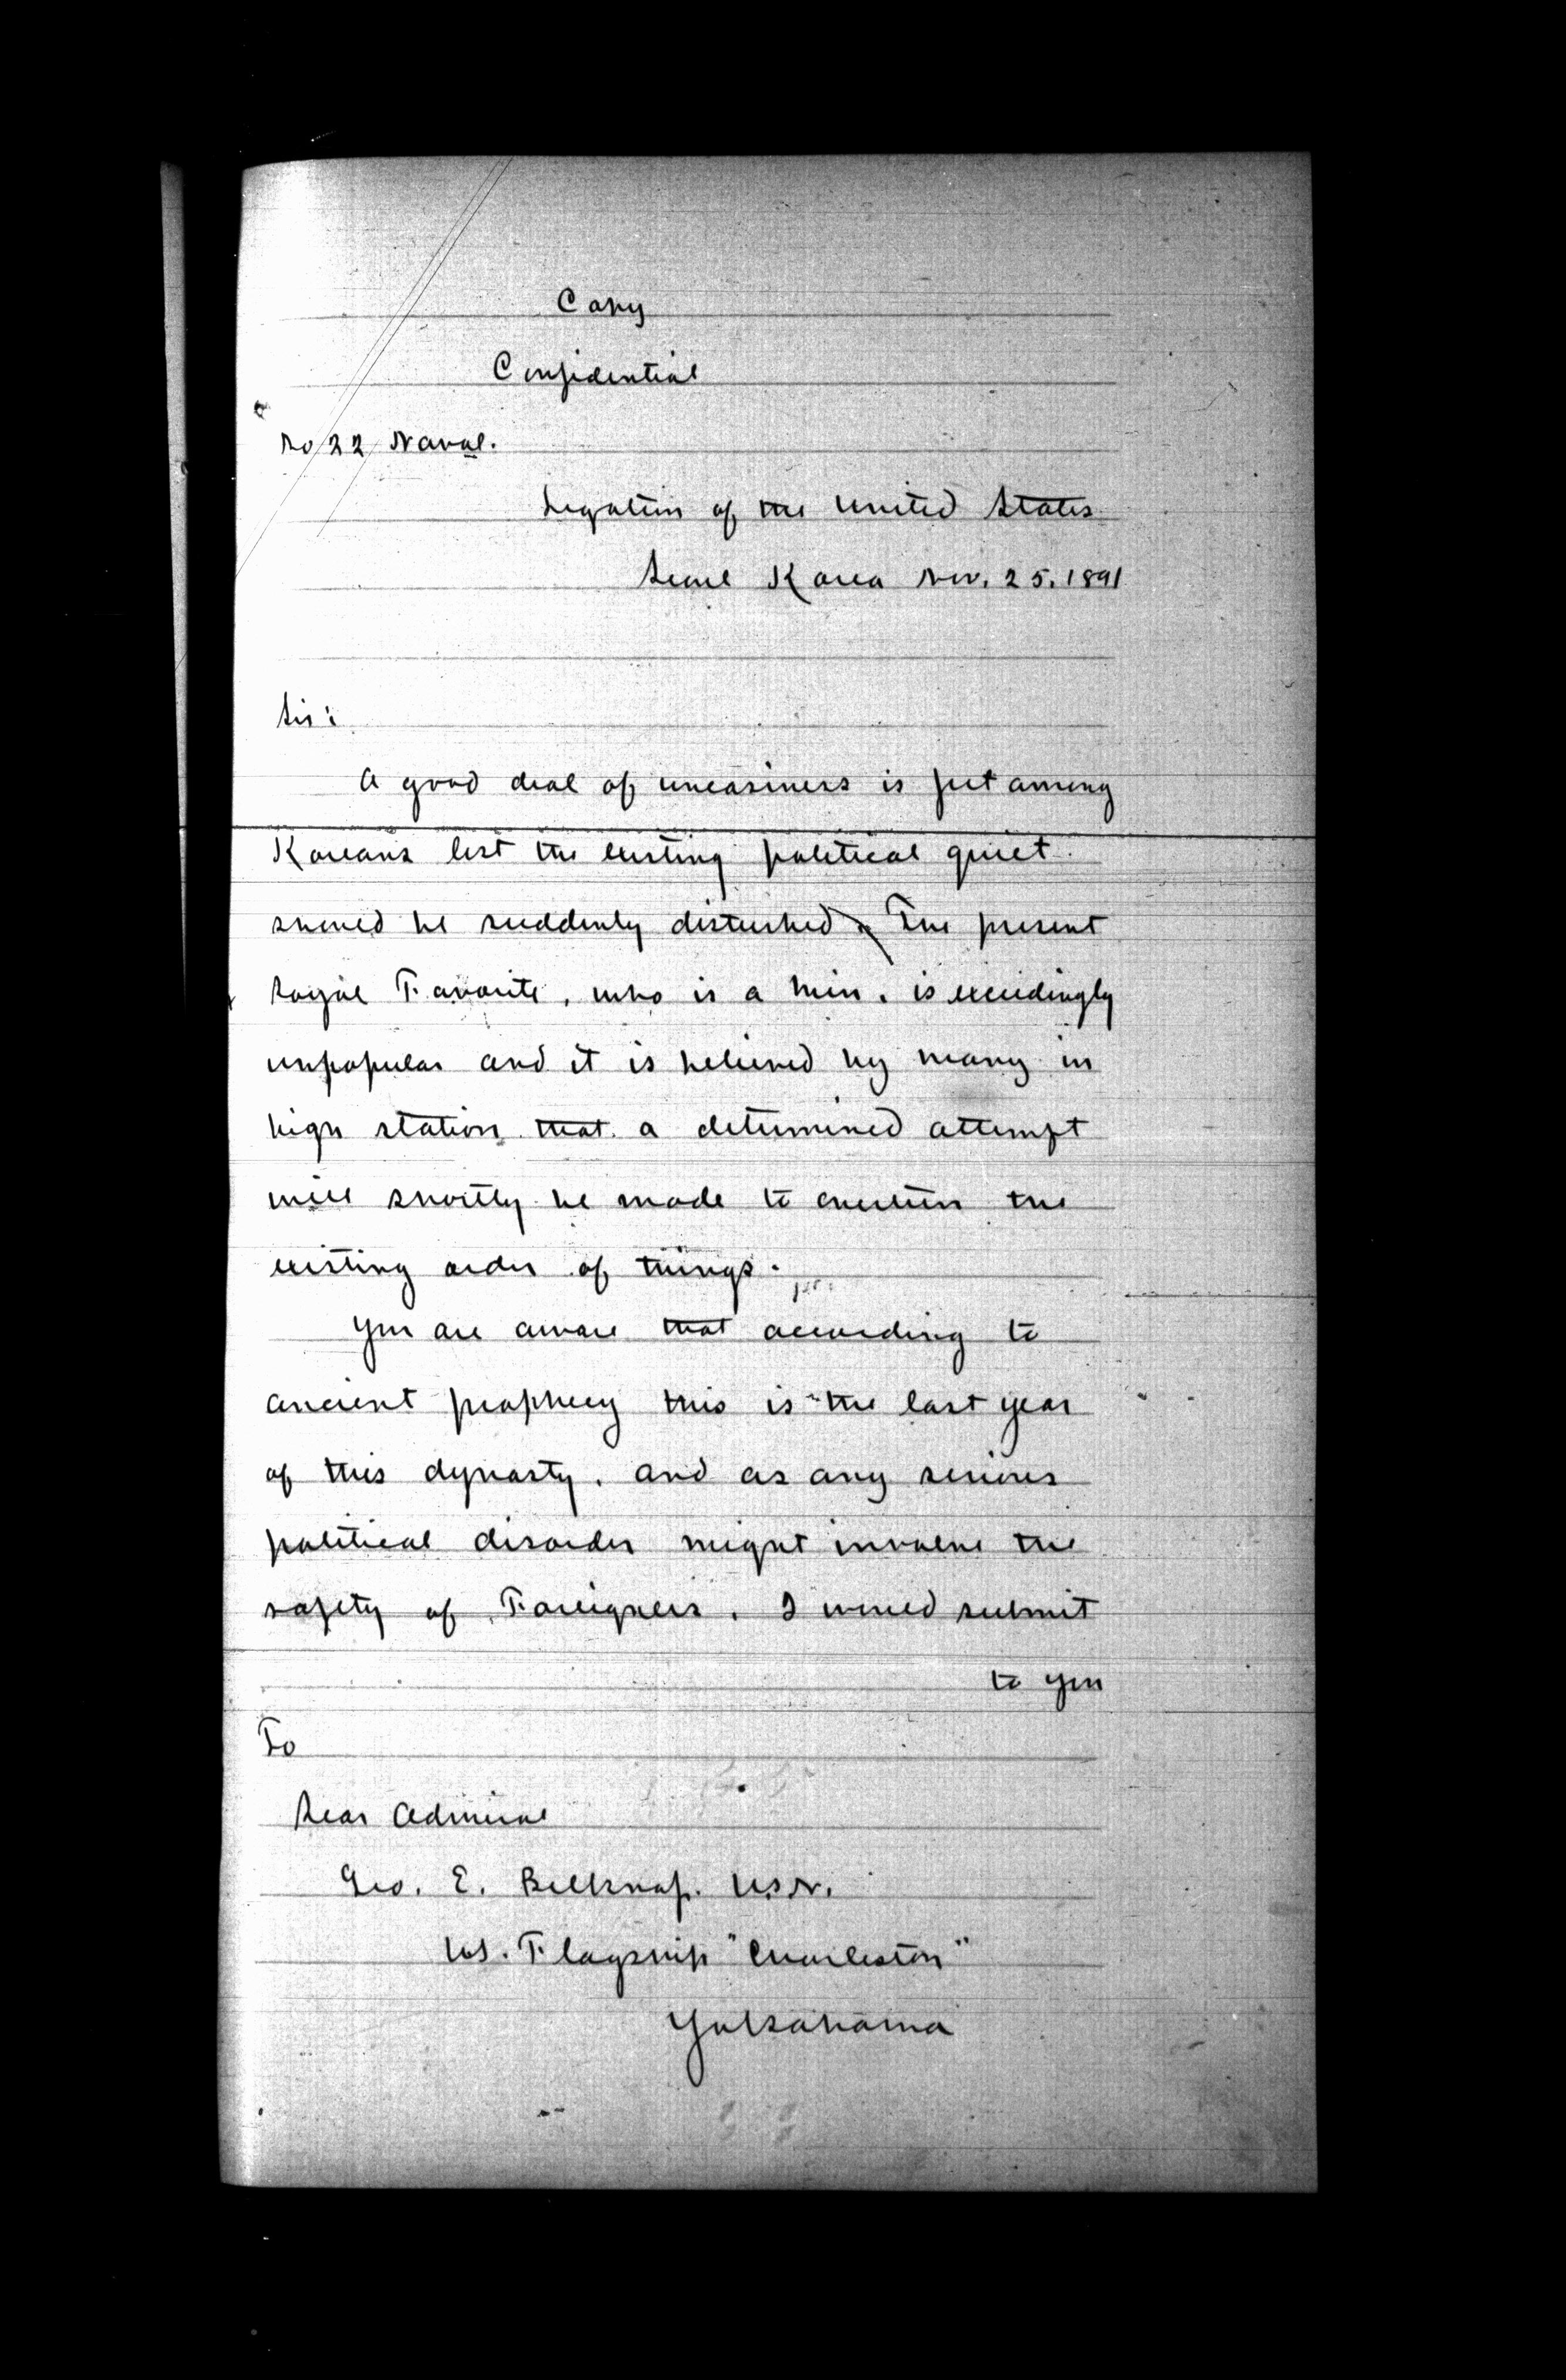 Copy
Confidential
No 22 Naval.
Legation of the United States
Seoul Korea Nov. 25. 1891
Sir:
A good deal of uneasiness is felt among
Koreans lest the existing political quiet
should be suddenly disturbed. The present
Royal Favorite, who is a Min, is exceedingly
unpopular and it is believed by many in
high station that a determined attempt
will shortly be made to overturn the
existing order of things.
You are aware that according to
ancient prophecy this is the last year
of this dynasty, and as any serious
political disorder might involve the
safety of Foreigners, I would submit
to you
To
Rear Admiral
Geo. E. Belknap. U.S.N.
U.S. Flagship "Charleston"
Yokohama